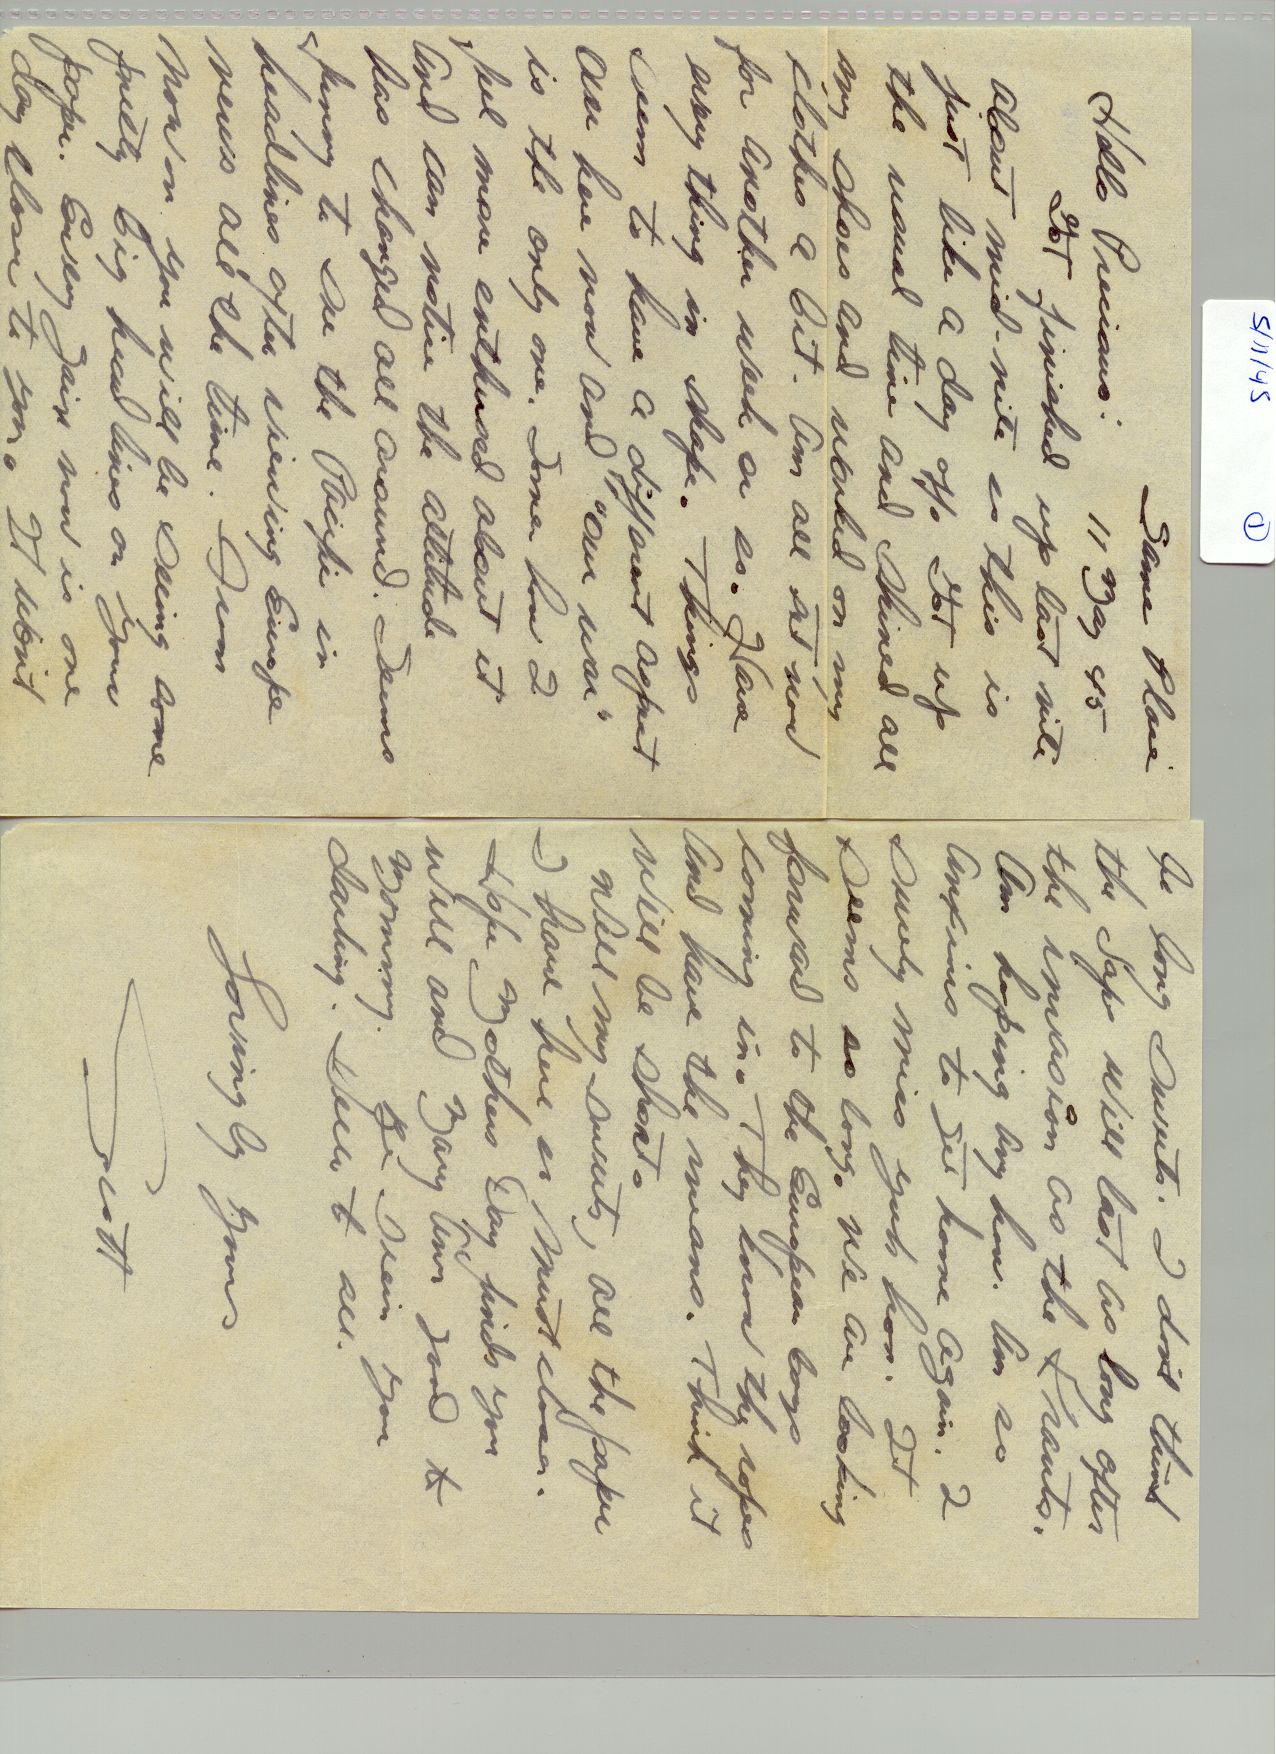 5/11/45 ①
Same Place
11 May 45
Hello Precious:
Got finished up last nite
about mid-nite so this is
just like a day off. Got up
the usual time and shined all
my shoes and worked on my
clothes a bit. Am all set now
for another week or so. Have
every thing in shape. Things
seem to have a different aspect
over here now and "our war"
is the only one. Some how I
feel more enthused about it
and can notice the attitude
has changed all around. Seems
funny to see the Pacific in
headlines after viewing Europe
news all the time. From
now on you will be seeing some
pretty big head lines on your
paper. Every gain now is one
day closer to you. It won't
be long Sweets. I don't think
the Japs will last as long after
the invasion as the Krauts.
Am hoping any how. Am so
anxious to get home again. I
surely miss yuh hon. It
seems so long. We are looking
forward to the European boys
coming in. They know the ropes
and have the means. Think it
will be short.
Well my sweets, all the paper
I have here so must close.
Hope Mothers Day finds you
well and Mary Ann good to
Mommy. Be seein you
darling. Hello to all.
Lovingly yours
Scott